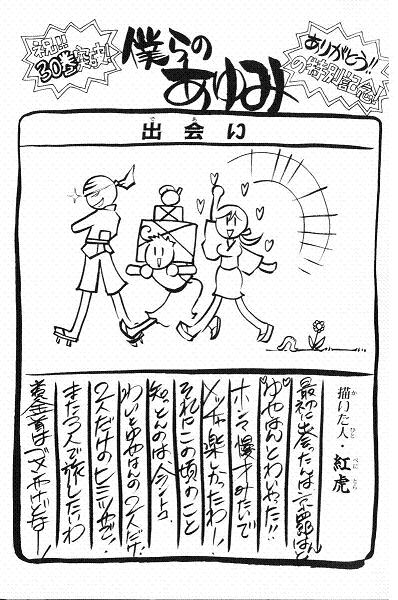 祝!!
30巻突破!
僕らの
あゆみ
ありがとう!!
の特別記念
出会い
描いた人・紅虎
最初に会ったんは京四郎はん
ゆやはんとわいやった!!
ホンマ、慢才みたいで
メッチャ楽しかったわー!
それにこの頃のこと
知っとんのは今ントコ
わいとゆやはんの2人だけ!
2人だけのヒミツやで!
また3人で旅したいわ
賞金首はゴメンやけどなー!